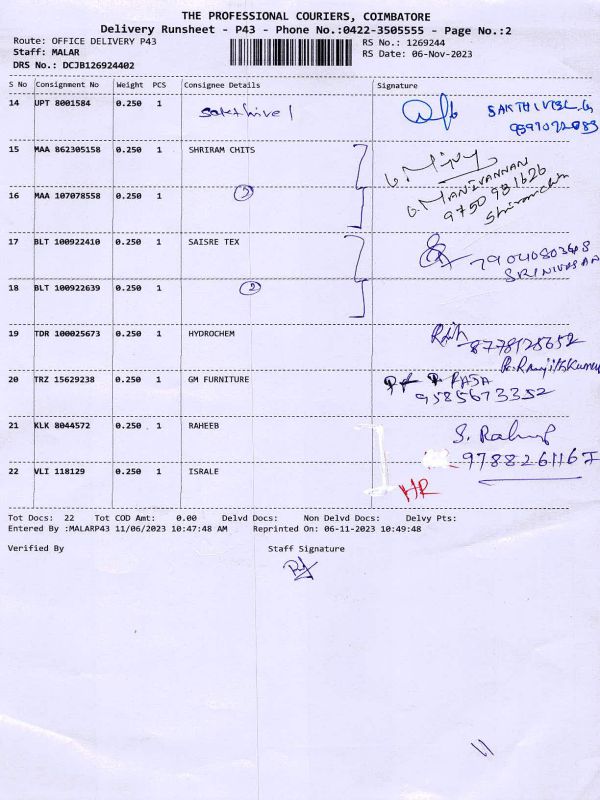 THE PROFESSIONAL COURIERS, COIMBATORE
Delivery Runsheet - P43 - Phone No.:0422-3505555 - Page No.:2
Route: OFFICE DELIVERY P43
RS No.: 1269244
Staff: MALAR
RS Date: 06-Nov-2023
DRS No.: DCJB126924402
S No Consignment No Weight PCS Consignee Details Signature
14 UPT 8001584 0.250 1 sakthivel SAKTHIVEL.G
15 MAA 862305158 0.250 1 SHRIRAM CHITS
G. MANIVANNAN
16 MAA 107078558 0.250 1 2 9750 981626
Shriramchits
17 BLT 100922410 0.250 1 SAISRE TEX 7904080368
SRINIVASAN
18 BLT 100922639 0.250 1 2
19 TDR 100025673 0.250 1 HYDROCHEM 8778128652
20 TRZ 15629238 0.250 1 GM FURNITURE RAJA
9585673352
21 KLK 8044572 0.250 1 RAHEEB S. Raheeb
9788261167
22 VLI 118129 0.250 1 ISRALE HR
Tot Docs: 22 Tot COD Amt: 0.00 Delvd Docs: Non Delvd Docs: Delvy Pts:
Entered By :MALARP43 11/06/2023 10:47:48 AM Reprinted On: 06-11-2023 10:49:48
Verified By Staff Signature